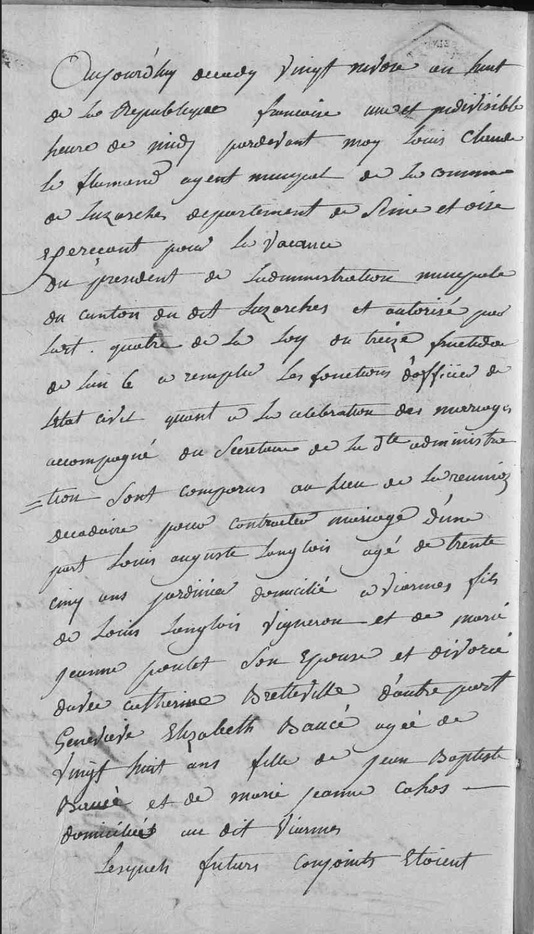 Aujourd'huy decady vingt nivose an huit
de la Republique francoise une et indivisible
heure de midy pardevant moy Louis Claude
le flamand agent municipal de la commune
de Luzarches departement de Seine et oise
Exercant pour la vacance
du president de Ladministration municipale
du canton du dit Luzarches et autorisé par
Lart. quatre de la Loy du treize fructidor
de Lan 6 a remplir Les fonctions d'officier de
Letat civil quant a la celebration des mariages
accompagné du Secretaire de la dte administra
=tion sont comparus au lieu de la reunion
decadaire pour contracter mariage d'une
part Louis auguste Langlois agé de trente
cinq ans jardinier domicilié a viarmes fils
de Louis Langlois vigneron et de marie
jeanne poulet son Epouse et divorcé
davec catherine Bretteville d'autre part
Genevieve Elizabeth Baucé agée de
vingt huit ans fille de jean Baptiste
Baucé et de marie jeanne Cahos —
domiciliés au dit viarmes
Lesquels futurs conjoints Etoient